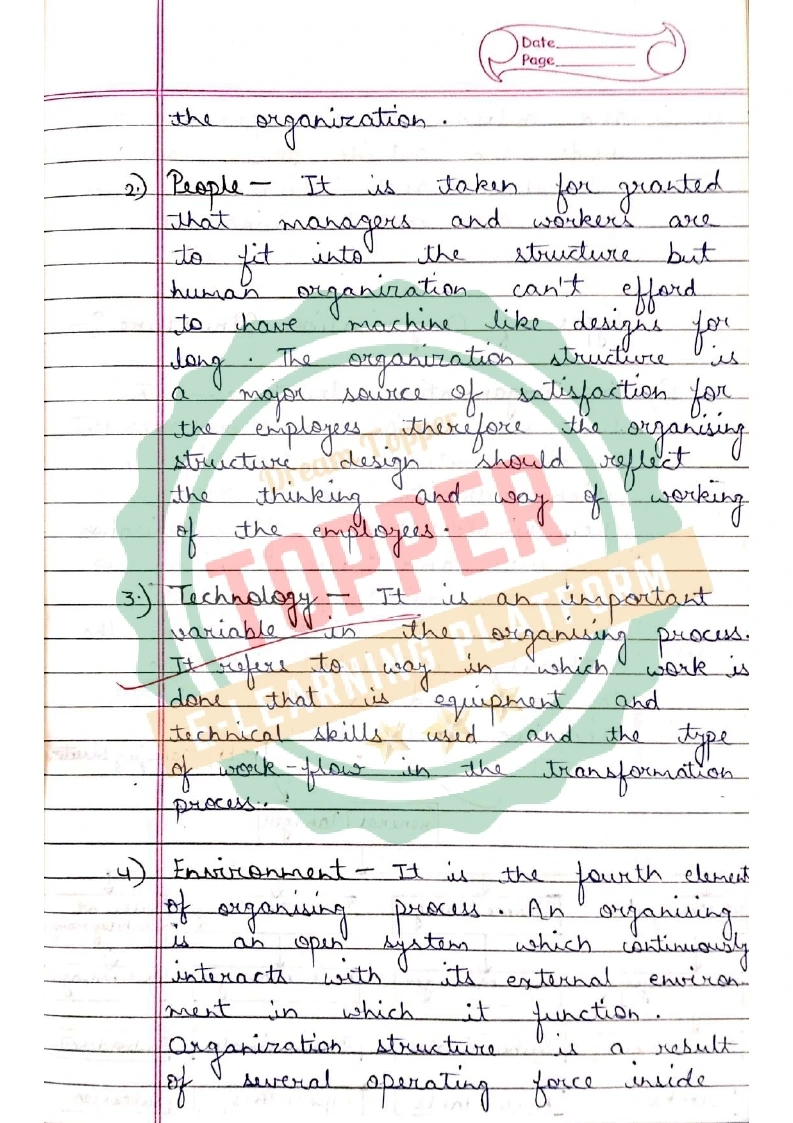 Date
Page
the organization.
2.) People - It is taken for granted
that managers and workers are
to fit into the structure but
human organization can't efford
to have machine like designs for
long. The organization structure is
a major source of satisfaction for
the employees therefore the organising
structure design should reflect
the thinking and way of working
of the employees.
3.) Technology - It is an important
variable in the organising process.
It refers to way in which work is
done that is equipment and
technical skills used and the type
of work-flow in the transformation
process.
4) Environment - It is the fourth element
of organising process. An organising
is an open system which continuously
interacts with its external environ
ment in which it function.
Organization structure is a result
of several operating force inside
Dream Topper
TOPPER
E-LEARNING PLATFORM